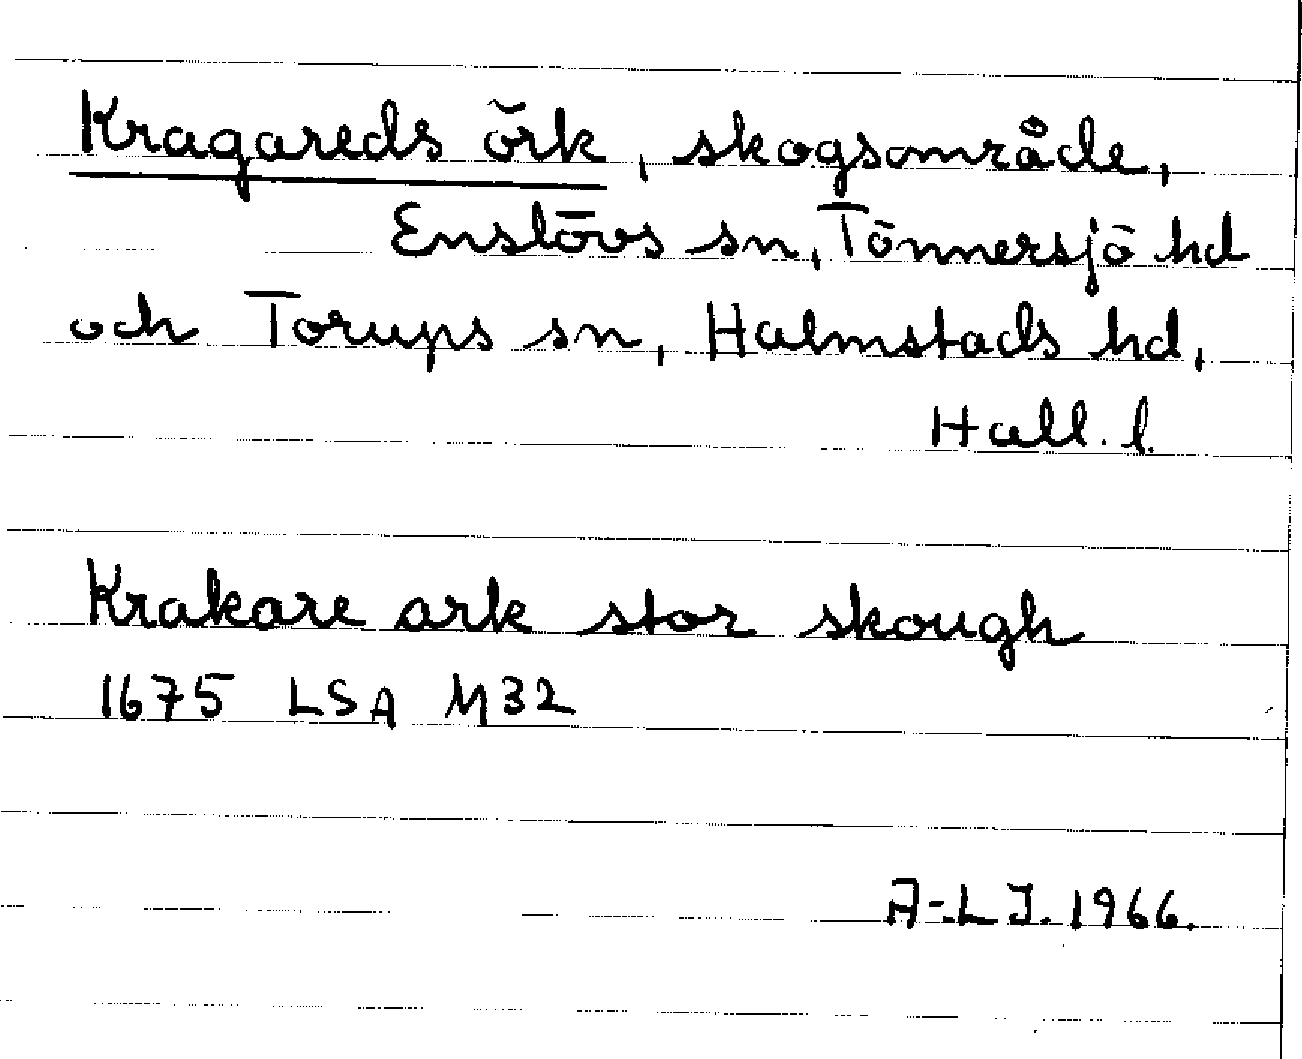 Kragareds örk, skogsområde,
Enslövs sn, Tönnersjö hd
och Torups sn, Halmstads hd,
Hall. l.
Krakare ark stor skough
1675 LSA M32
A-L J. 1966.